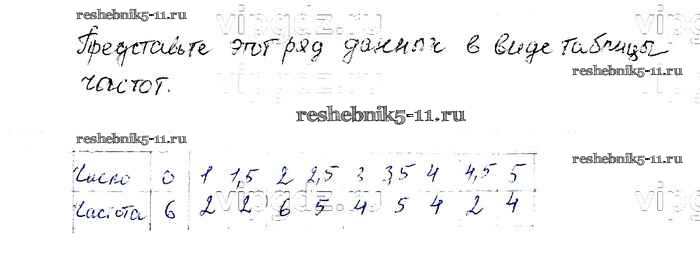 reshebnik5-11.ru
Представьте этот ряд данных в виде таблицы
частот.
reshebnik5-11.ru
reshebnik5-11.ru
reshebnik5-11.ru
Число 0 1 1,5 2 2,5 3 3,5 4 4,5 5
Частота 6 2 2 6 5 4 5 4 2 4